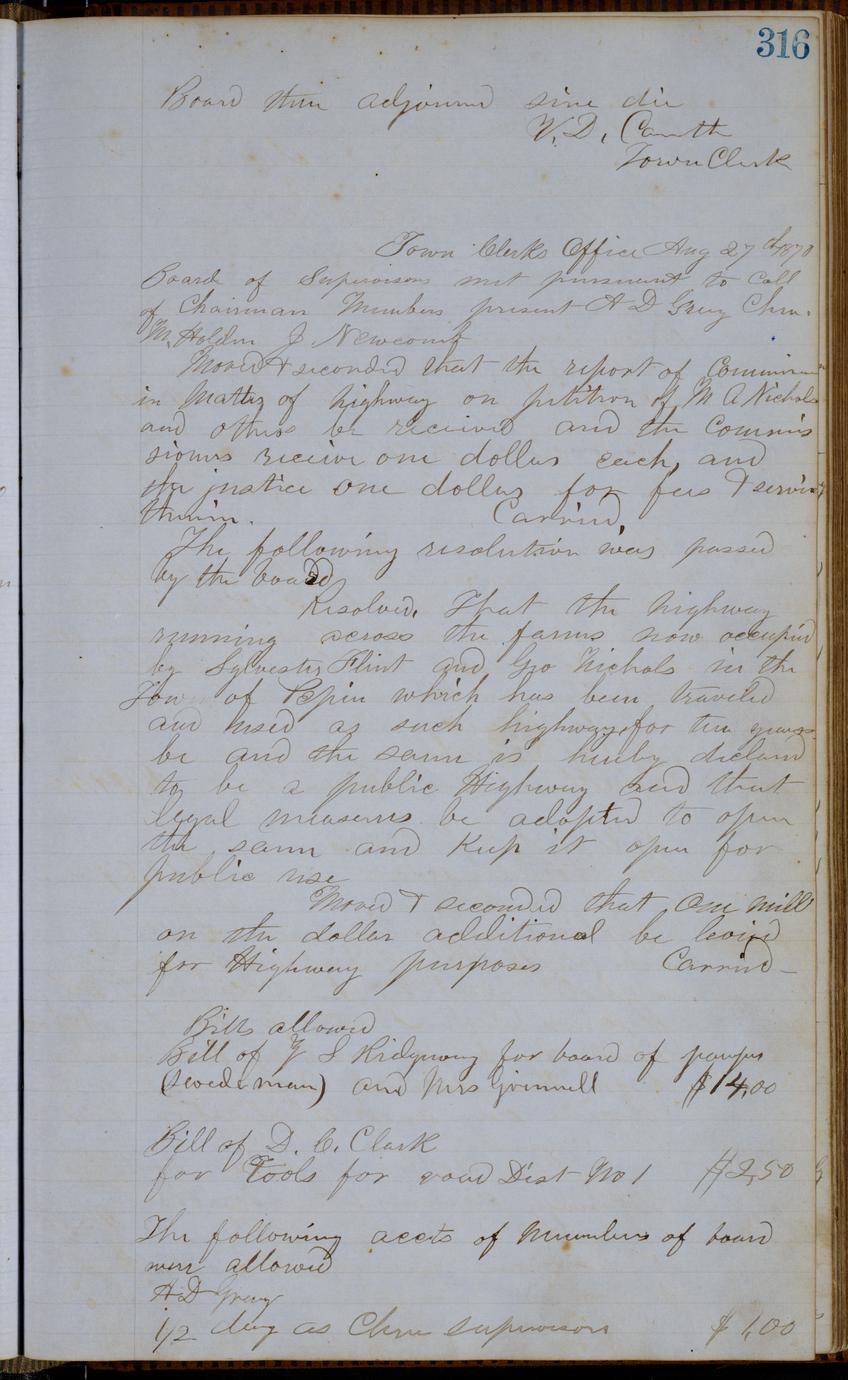 316
Board then adjourned sine die
V. D. Carruth
Town Clerk
Town Clerks Office Aug 27th 1870
Board of Supervisors met pursuant to call
of Chairman Members present A D Gray Chm.
M. Holden J Newcomb
Moved & seconded that the report of Commissioners
in matter of highway on petition of M A Nichols
and others be received and the Commis
sioners receive one dollar each, and
the justice one dollar for fees & services
therein. Carried,
The following resolution was passed
by the board
Resolved, That the highway
running across the farms now occupied
by Sylvester Flint and Geo Nichols in the
Town of Pepin which has been traveled
and used as such highway for ten years
be and the same is hereby declared
to be a public Highway and that
legal measures be adopted to open
the same and Keep it open for
public use
Moved & seconded that One mill
on the dollar additional be levied
for Highway purposes Carried -
Bills allowed
Bill of Y S Ridgway for board of pauper
(Swede man) and Mrs Grinnell $14.00
Bill of D. C. Clark
for Tools for road Dist No 1 $2,50
The following accts of Members of board
were allowed
A D Gray
1/2 day as Chm supervisors $1,00